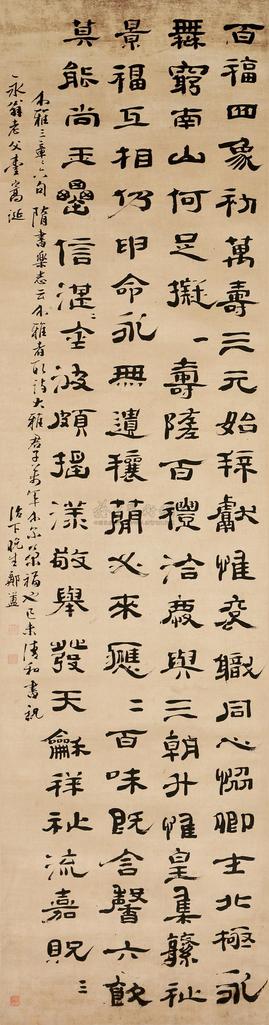 百福四象初萬壽三元始拜獻惟袞職同心協卿士北極永
無窮南山何足擬一壽隨百禮洽慶與三朝升惟皇集繁祉
景福互相仍申命永無遺穰簡必來應二百味既含馨六飲
莫能尚玉罍信湛〻金波頗搖漾敬舉發天龢祥祉流嘉貺三
介雅三章〻六句隋書樂志云介雅者取詩大雅君子萬年介爾景福也己未清和書祝
永翁老父臺嵩誕
治下晚生鄭簠